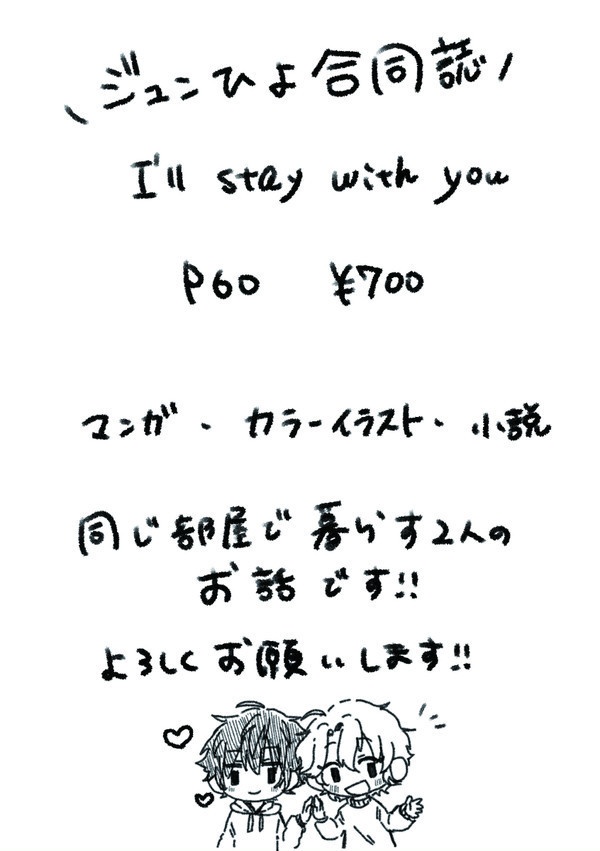 \ジュンひよ合同誌/
I'll stay with you
P60 ¥700
マンガ・カラーイラスト・小説
同じ部屋で暮らす2人の
お話です!!
よろしくお願いします!!